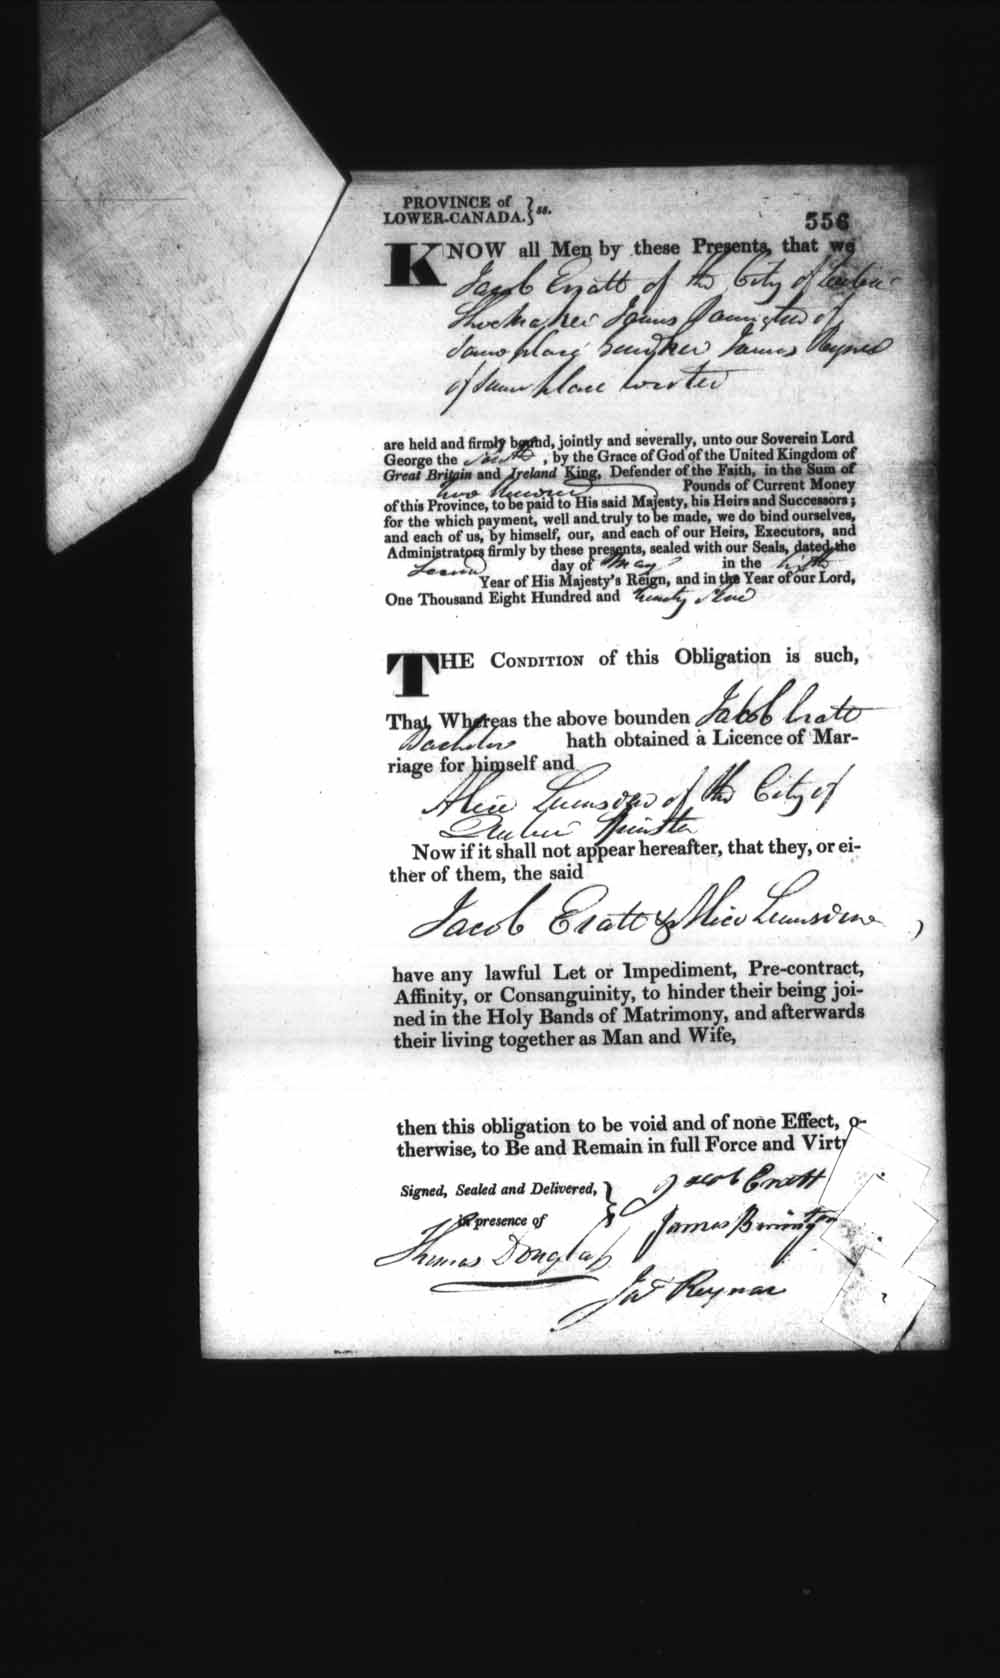 PROVINCE of
LOWER-CANADA. } ss.
556
KNOW all Men by these Presents, that we
Jacob Eratt of the City of Quebec
Shoemaker James of
same place James Reynar
of same place
are held and firmly bound, jointly and severally, unto our Soverein Lord
George the Fourth, by the Grace of God of the United Kingdom of
Great Britain and Ireland King, Defender of the Faith, in the Sum of
two hundred Pounds of Current Money
of this Province, to be paid to His said Majesty, his Heirs and Successors;
for the which payment, well and truly to be made, we do bind ourselves,
and each of us, by himself, our, and each of our Heirs, Executors, and
Administrators firmly by these presents, sealed with our Seals, dated the
Second day of May in the
Year of His Majesty's Reign, and in the Year of our Lord,
One Thousand Eight Hundred and twenty
THE CONDITION of this Obligation is such,
That, Whereas the above bounden Jacob Eratt
Bachelor hath obtained a Licence of Mar-
riage for himself and
Alice Lumsden of the City of
Quebec Spinster
Now if it shall not appear hereafter, that they, or ei-
ther of them, the said
Jacob Eratt & Alice Lumsden ,
have any lawful Let or Impediment, Pre-contract,
Affinity, or Consanguinity, to hinder their being joi-
ned in the Holy Bands of Matrimony, and afterwards
their living together as Man and Wife,
then this obligation to be void and of none Effect, o-
therwise, to Be and Remain in full Force and Virtu
Signed, Sealed and Delivered, }
in presence of
Jacob Eratt
James
Thomas Douglass
Jas Reynar